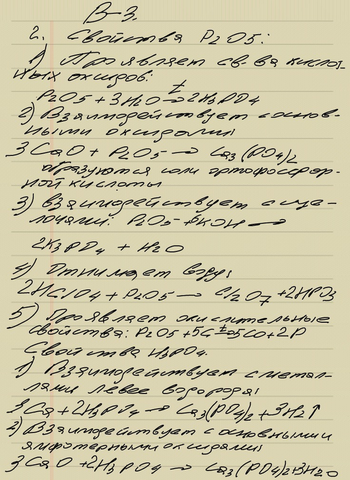 В-3.
2. Свойства P2O5:
1) Проявляет св-ва кислот-
ных оксидов:
P2O5 + 3H2O t→ 2H3PO4
2) Взаимодействует с основ-
ными оксидами:
3CaO + P2O5 → Ca3(PO4)2
образуются соли ортофосфор-
ной кислоты
3) Взаимодействует с ще-
лочами: P2O5 + 6KOH →
2K3PO4 + H2O
4) Отнимает воду:
2HClO4 + P2O5 → Cl2O7 + 2HPO3
5) Проявляет окислительные
свойства: P2O5 + 5C t→ 5CO + 2P
Свойства H3PO4.
1) Взаимодействует с метал-
лами левее водорода:
3Ca + 2H3PO4 → Ca3(PO4)2 + 3H2↑
2) Взаимодействует с основными и
амфотерными оксидами:
3CaO + 2H3PO4 → Ca3(PO4)2 + 3H2O